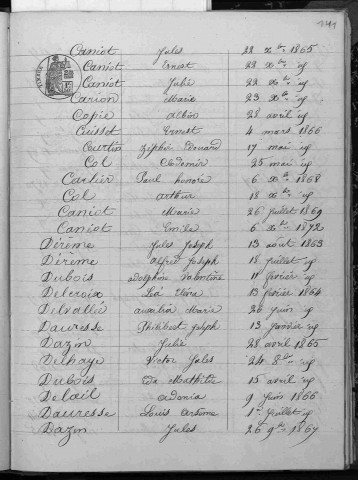 141
Caniot Jules 22 Xbre 1865
Caniot Ernest 22 Xbre id
Caniot Julie 22 Xbre id
Carion Marie 23 Xbre id
Copie Albin 28 avril id
Cuisset Ernest 4 mars 1866
Courtin Zéphir Edouard 17 mai id
Col Clodomir 25 mai id
Carlier Paul honoré 6 Xbre 1868
Col arthur 18 Xbre id
Caniot Marie 26 juillet 1869
Caniot Emile 6 Xbre 1872
Dérème Jules Joseph 13 août 1863
Dérème Alfred Joseph 18 juillet id
Dubois Delphine Valentine 11 février id
Delcroix Léa 13 février 1864
Delvallée Marie 26 juin id
Dauresse Philibert Joseph 13 Janvier id
Dazin Julie 28 avril 1865
Delhaye Victor Jules 24 8bre id
Dubois Ida Mathilde 15 avril id
Delail Adonia 9 juin 1866
Dauresse Louis Arsème 1er juillet id
Dazin Jules 26 9bre 1867